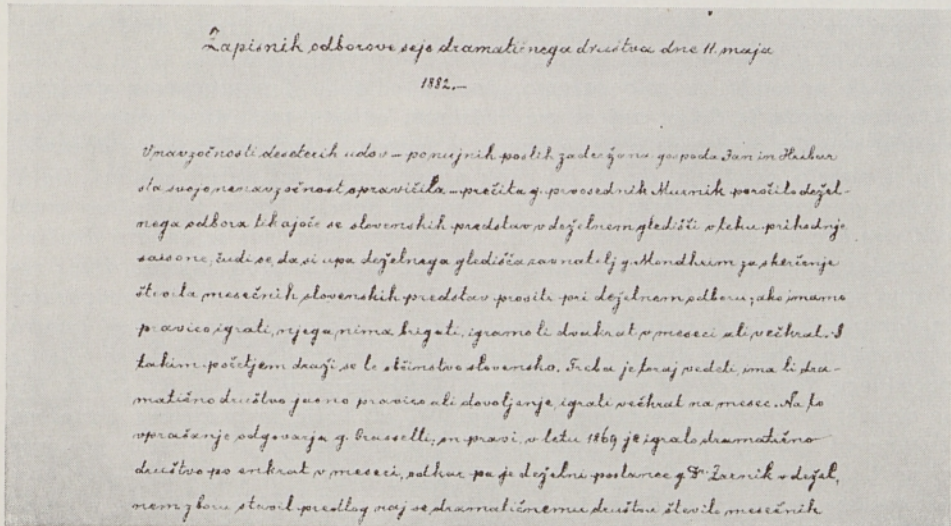 Zapisnik odborove seje dramatičnega društva dne 11. maja
1882.—
V navzočnosti deseterih udov — ponujnih poslih zaderžana gospoda Jan in Hribar
sta svojo nenavzočnost opravičila — prečita g. prvosednik Murnik poročilo dežel-
nega odbora tikajoče se slovenskih predstav v deželnem gledišči v teku prihodnje
saisone, čudi se, da si upa deželnega gledišča ravnatelj g. Mondheim za skerčenje
števila mesečnih slovenskih predstav prositi pri deželnem odboru; ako imamo
pravico igrati, njega nima brigati, igramo li dvakrat v meseci ali večkrat. S
takim početjem draži se le občinstvo slovensko. Treba je toraj vedeti, ima li dra-
matično društvo jasno pravico ali dovoljenje, igrati večkrat na mesec. Na to
vprašanje odgovarja g. Grasselli, in pravi, v letu 1869 je igralo dramatično
društvo po enkrat v meseci, odkar pa je deželni poslanec g. Dr. Zarnik v dežel-
nem zboru stavil predlog naj se dramatičnemu društvu število mesečnih